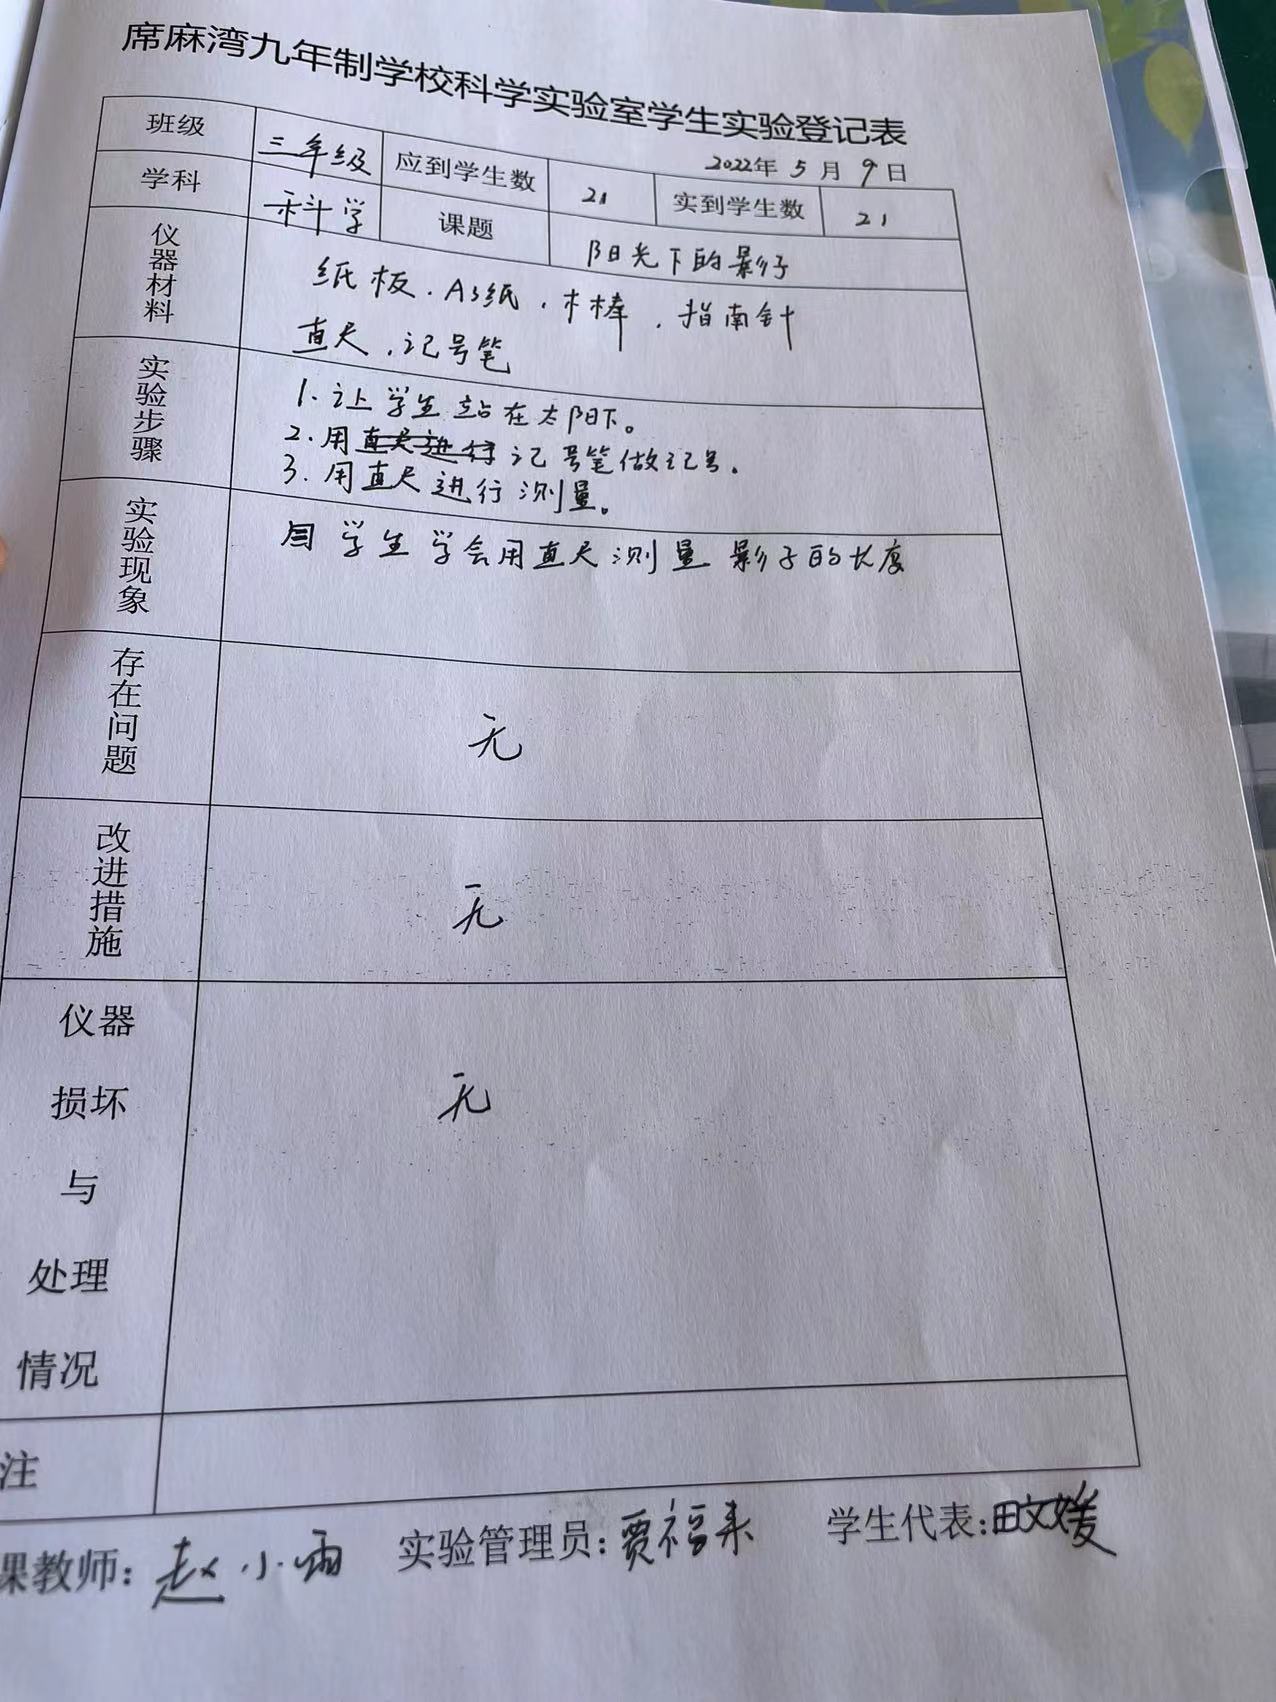 席麻湾九年制学校科学实验室学生实验登记表
2022年 5 月 9 日
班级 三年级 应到学生数 21 实到学生数 21
学科 科学 课题 阳光下的影子
仪器材料 纸板.A3纸.木棒.指南针
直尺.记号笔
实验步骤 1.让学生站在太阳下。
2.用直尺进行记号笔做记号.
3.用直尺进行测量。
实验现象 学生学会用直尺测量影子的长度
存在问题 无
改进措施 无
仪器 损坏 与 处理 情况 无
注
课教师:赵小雨 实验管理员:贾福来 学生代表:田文媛